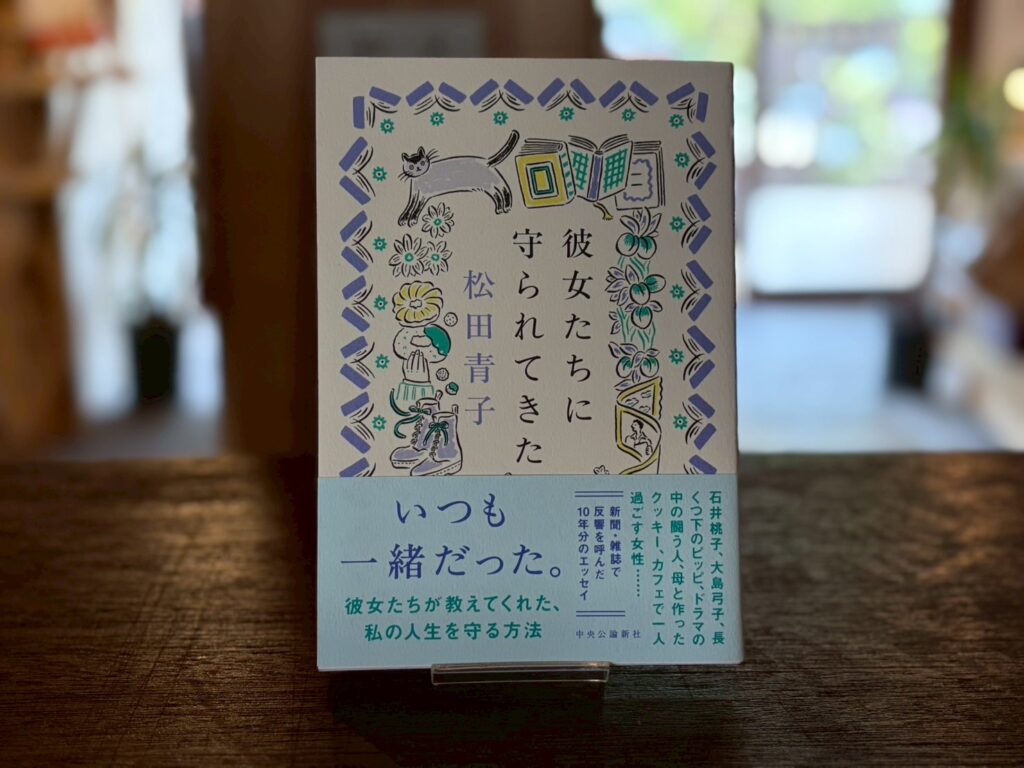 彼女たちに
守られてきた
松田青子
石井桃子、大島弓子、長
くつ下のピッピ、ドラマの
中の闘う人、母と作った
クッキー、カフェで一人
過ごす女性……
新聞・雑誌で
反響を呼んだ
10年分のエッセイ
いつも
一緒だった。
彼女たちが教えてくれた、
私の人生を守る方法
中央公論新社